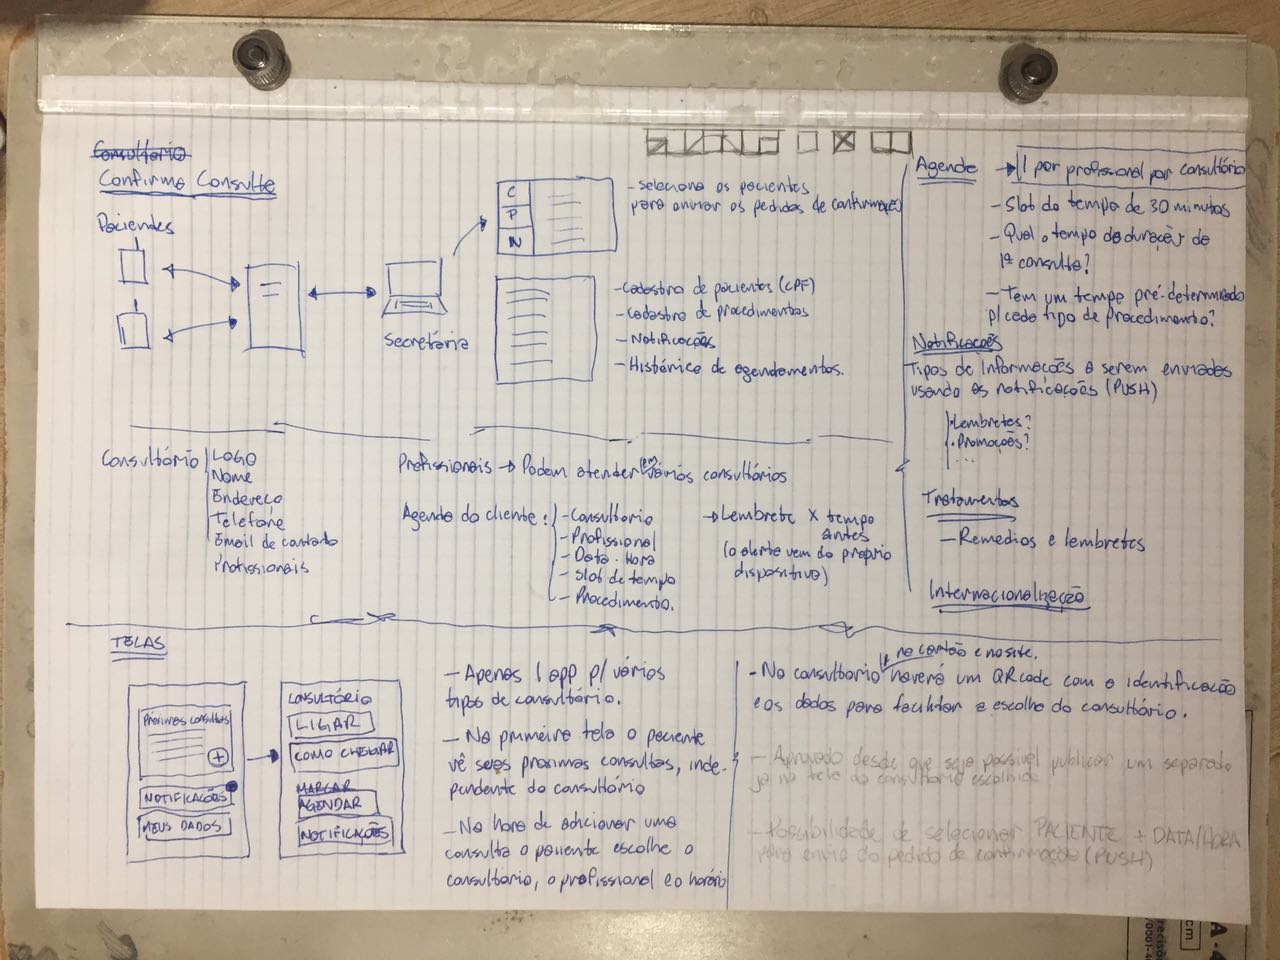 Consultorio
Confirma Consulta
Pacientes
Secretária
C
P
N
- Seleciona os pacientes
para enviar os pedidos de confirmação
- Cadastro de pacientes (CPF)
- Cadastro de procedimentos
- Notificações
- Histórico de agendamentos.
Agenda → 1 por profissional por consultório
- Slot de tempo de 30 minutos
- Qual o tempo de duração de
1ª consulta?
- Tem um tempo pré-determinado
p/ cada tipo de procedimento?
Notificações
Tipos de informações a serem enviadas
usando as notificações (PUSH)
· Lembretes?
· Promoções?
...
Tratamentos
- Remédios e lembretes
Internacionalização
Consultório
LOGO
Nome
Endereço
Telefone
Email de contato
Profissionais
Profissionais → Podem atender em vários consultórios
Agenda do cliente:
- Consultorio
- Profissional
- Data · Hora
- Slot de tempo
- Procedimento.
→ Lembrete X tempo
antes
(o alerta vem do próprio
dispositivo)
TELAS
Próximas consultas
+
NOTIFICAÇÕES
MEUS DADOS
CONSULTÓRIO
LIGAR
COMO CHEGAR
MARCAR
AGENDAR
NOTIFICAÇÕES
- Apenas 1 app p/ vários
tipos de consultório.
- Na primeira tela o paciente
vê suas proximas consultas, inde-
pendente do consultório
- Na hora de adicionar uma
consulta o paciente escolhe o
consultorio, o profissional e o horário
no cartão e no site.
- No consultorio haverá um QRcode com a identificação
e os dados para facilitar a escolha do consultório.
- Aprovado desde que seja possível publicar um separado
já na tela do consultorio escolhido
- Possibilidade de selecionar PACIENTE + DATA/HORA
para envio do pedido de confirmação (PUSH)
A-4
cm.